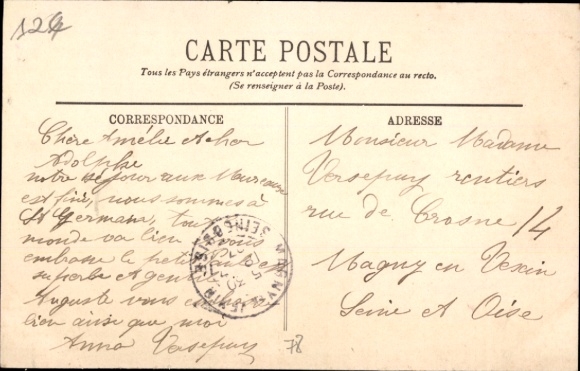 124
CARTE POSTALE
Tous les Pays étrangers n'acceptent pas la Correspondance au recto.
(Se renseigner à la Poste).
CORRESPONDANCE
Chère Amélie et cher
Adolphe
notre séjour aux
est fini, nous sommes à
St Germain, tout
monde va bien vous
embrasse le petit
superbe
Auguste vous
bien ainsi que moi
Anna Versepuy
ADRESSE
Monsieur Madame
Versepuy rentiers
rue de Crosne 14
Magny en Vexin
Seine et Oise
78
MAGNY-EN-VEXIN
SEINE-ET-OISE